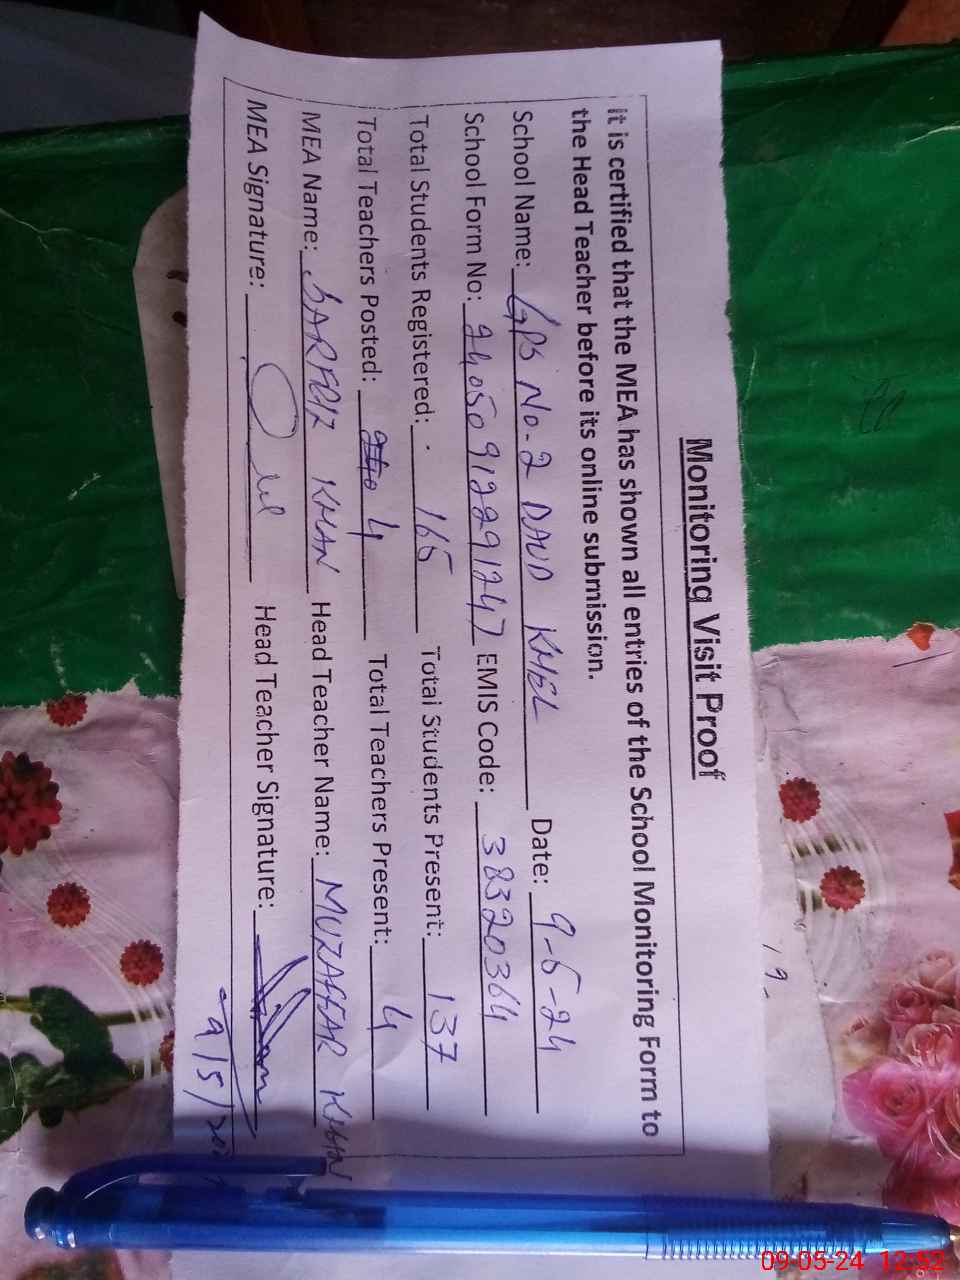 Monitoring Visit Proof
it is certified that the MEA has shown all entries of the School Monitoring Form to
the Head Teacher before its online submission.
School Name: GPS No-2 DAUD KHEL Date: 9-5-24
School Form No: 240509122291247 EMIS Code: 38320364
Total Students Registered: 165 Total Students Present: 137
Total Teachers Posted: 4 Total Teachers Present: 4
MEA Name: SARFRIZ KHAN Head Teacher Name: MUZAFFAR KHAN
MEA Signature: Head Teacher Signature:
9/5/
19-
09-05-24 12:52